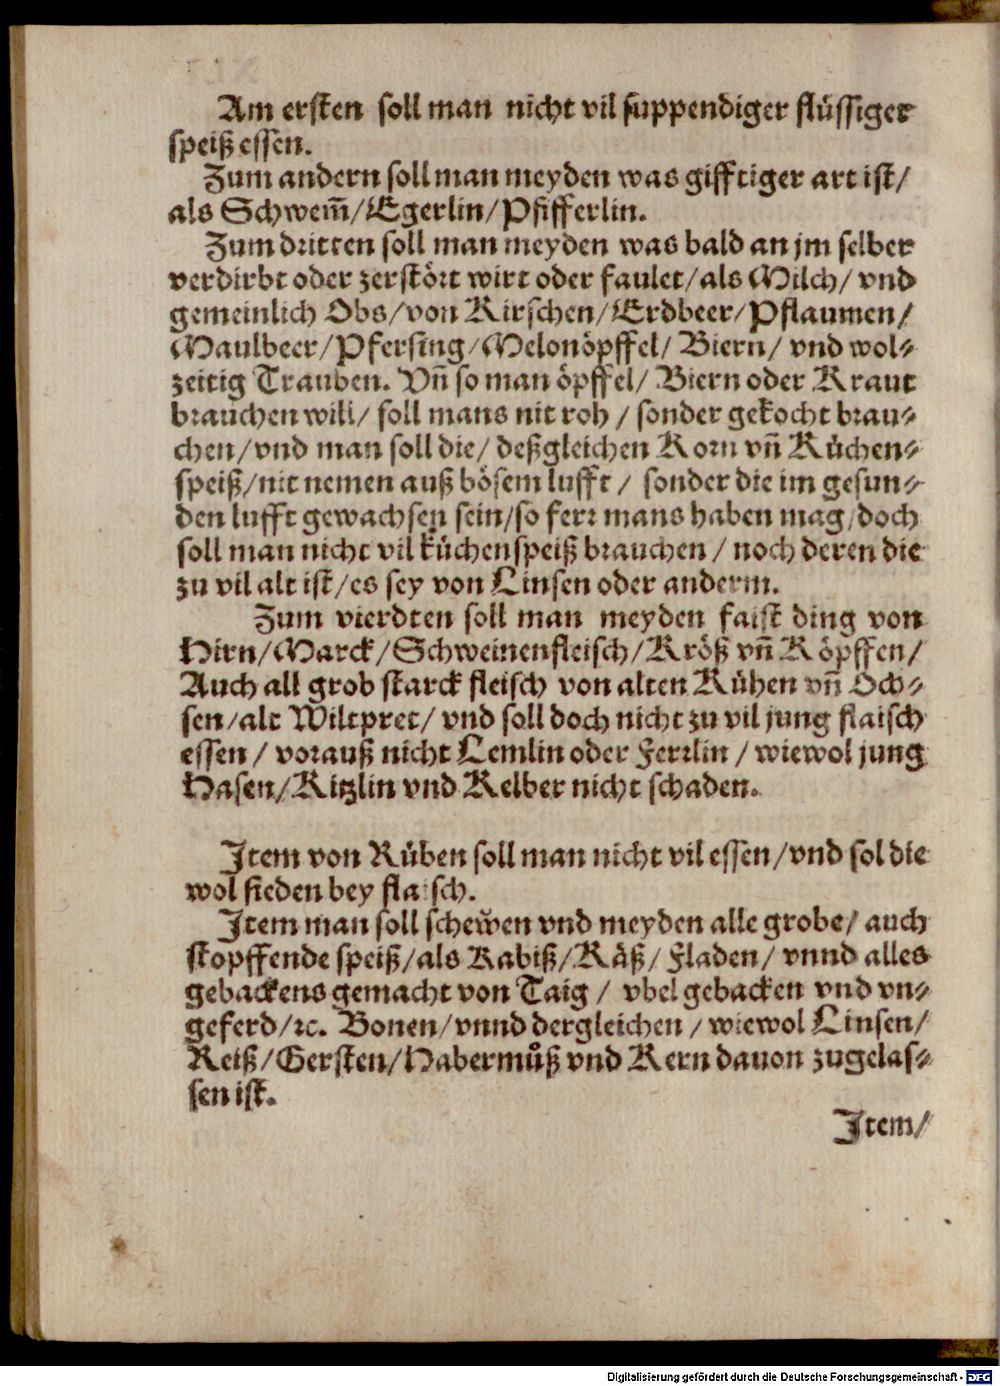 Am ersten soll man nicht vil suppendiger flüssiger
speiß essen.
Zum andern soll man meyden was gifftiger art ist/
als Schwem̃/Egerlin/Pfifferlin.
Zum dritten soll man meyden was bald an jm selber
verdirbt oder zerstört wirt oder faulet/als Milch/ vnd
gemeinlich Obs/von Kirschen/Erdbeer/Pflaumen/
Maulbeer/Pfersing/Melonöpffel/ Biern/ vnd wol⸗
zeitig Trauben. Vñ so man öpffel/ Biern oder Kraut
brauchen will/ soll mans nit roh / sonder gekocht brau⸗
chen/vnd man soll die/ deßgleichen Korn vñ Küchen⸗
speiß/nit nemen auß bösem lufft / sonder die im gesun⸗
den lufft gewachsen sein/so ferr mans haben mag/doch
soll man nicht vil küchenspeiß brauchen / noch deren die
zu vil alt ist/es sey von Linsen oder anderm.
Zum vierdten soll man meyden faist ding von
Hirn/Marck/Schweinenfleisch/Kröß vñ Köpffen/
Auch all grob starck fleisch von alten Kühen vñ Och⸗
sen/alt Wiltpret/ vnd soll doch nicht zu vil jung flaisch
essen / vorauß nicht Lemlin oder Ferrlin / wiewol jung
Hasen/Kitzlin vnd Kelber nicht schaden.
Item von Rüben soll man nicht vil essen/vnd sol die
wol sieden bey flaisch.
Item man soll schewen vnd meyden alle grobe/ auch
stopffende speiß/als Kabiß/Käß/ Fladen/ vnnd alles
gebackens gemacht von Taig / vbel gebacken vnd vn⸗
geferd/ꝛc. Bonen/vnnd dergleichen / wiewol Linsen/
Reiß/Gersten/Habermůß vnd Kern dauon zugelas⸗
sen ist.
Item/
Digitalisierung gefördert durch die Deutsche Forschungsgemeinschaft - DFG